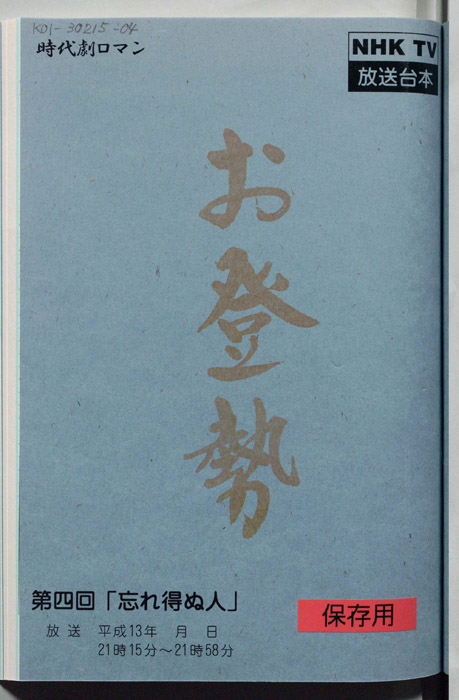 K01-30215-04
時代劇ロマン
NHK TV
放送台本
お登勢
第四回「忘れ得ぬ人」
保存用
放送 平成13年 月 日
21時15分～21時58分